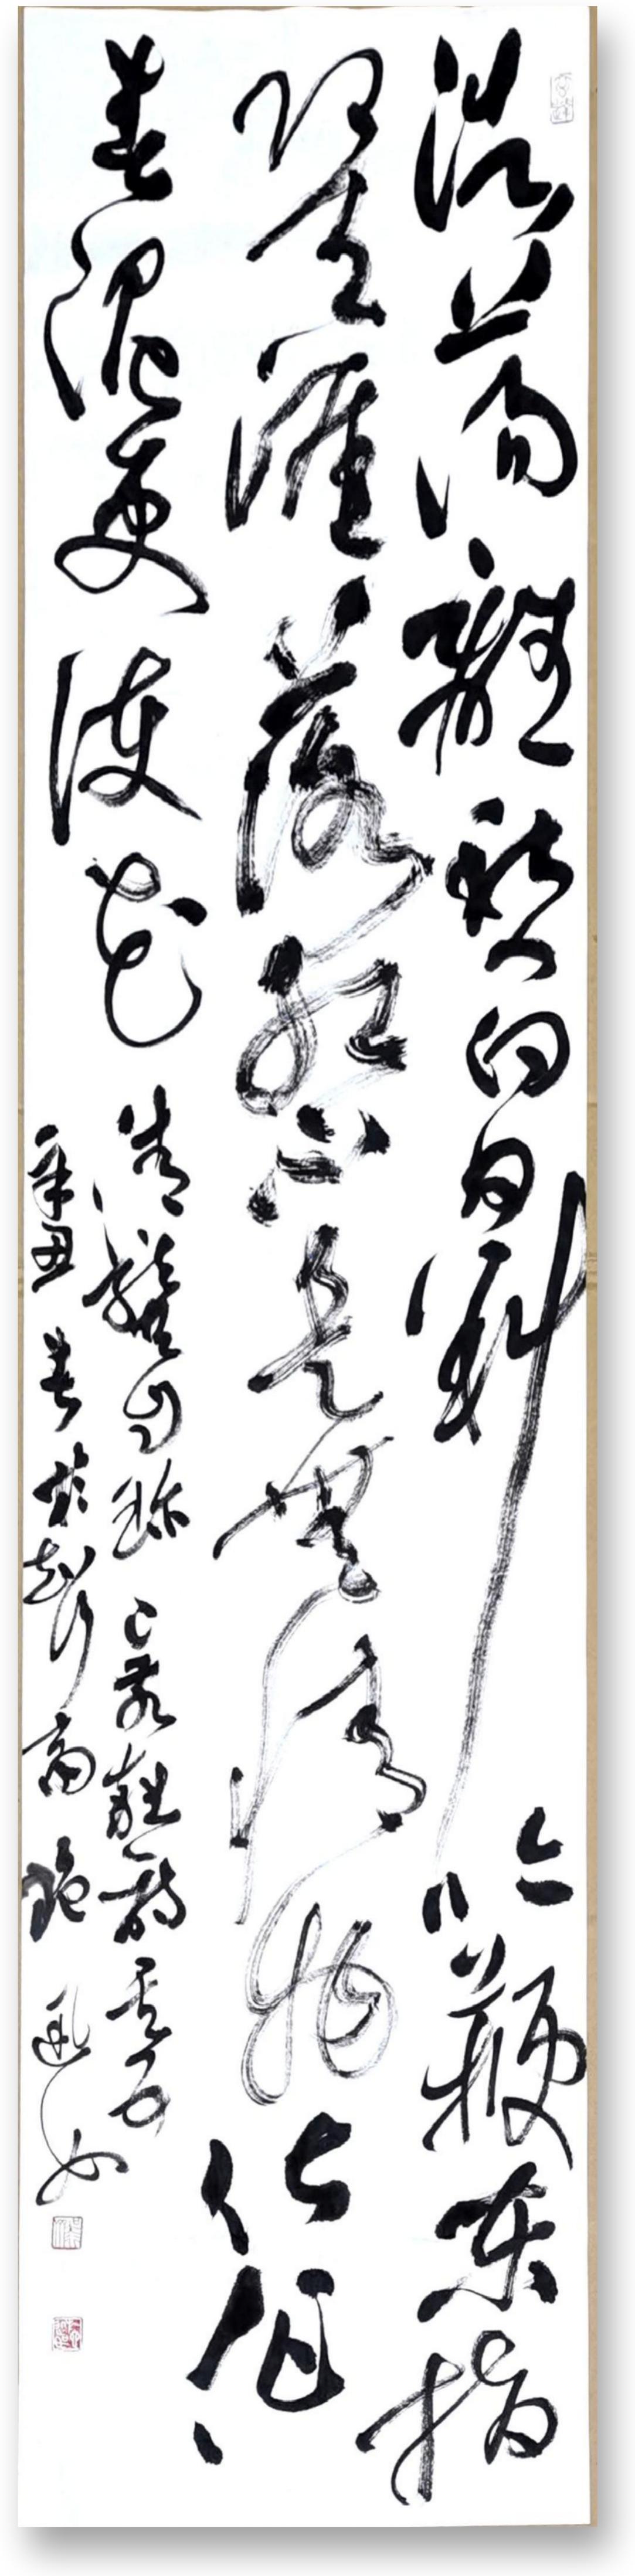 浩荡离愁白日斜吟鞭东指
即天涯落红不是无情物化作
春泥更护花 清龚自珍己亥杂诗其五
辛丑春于